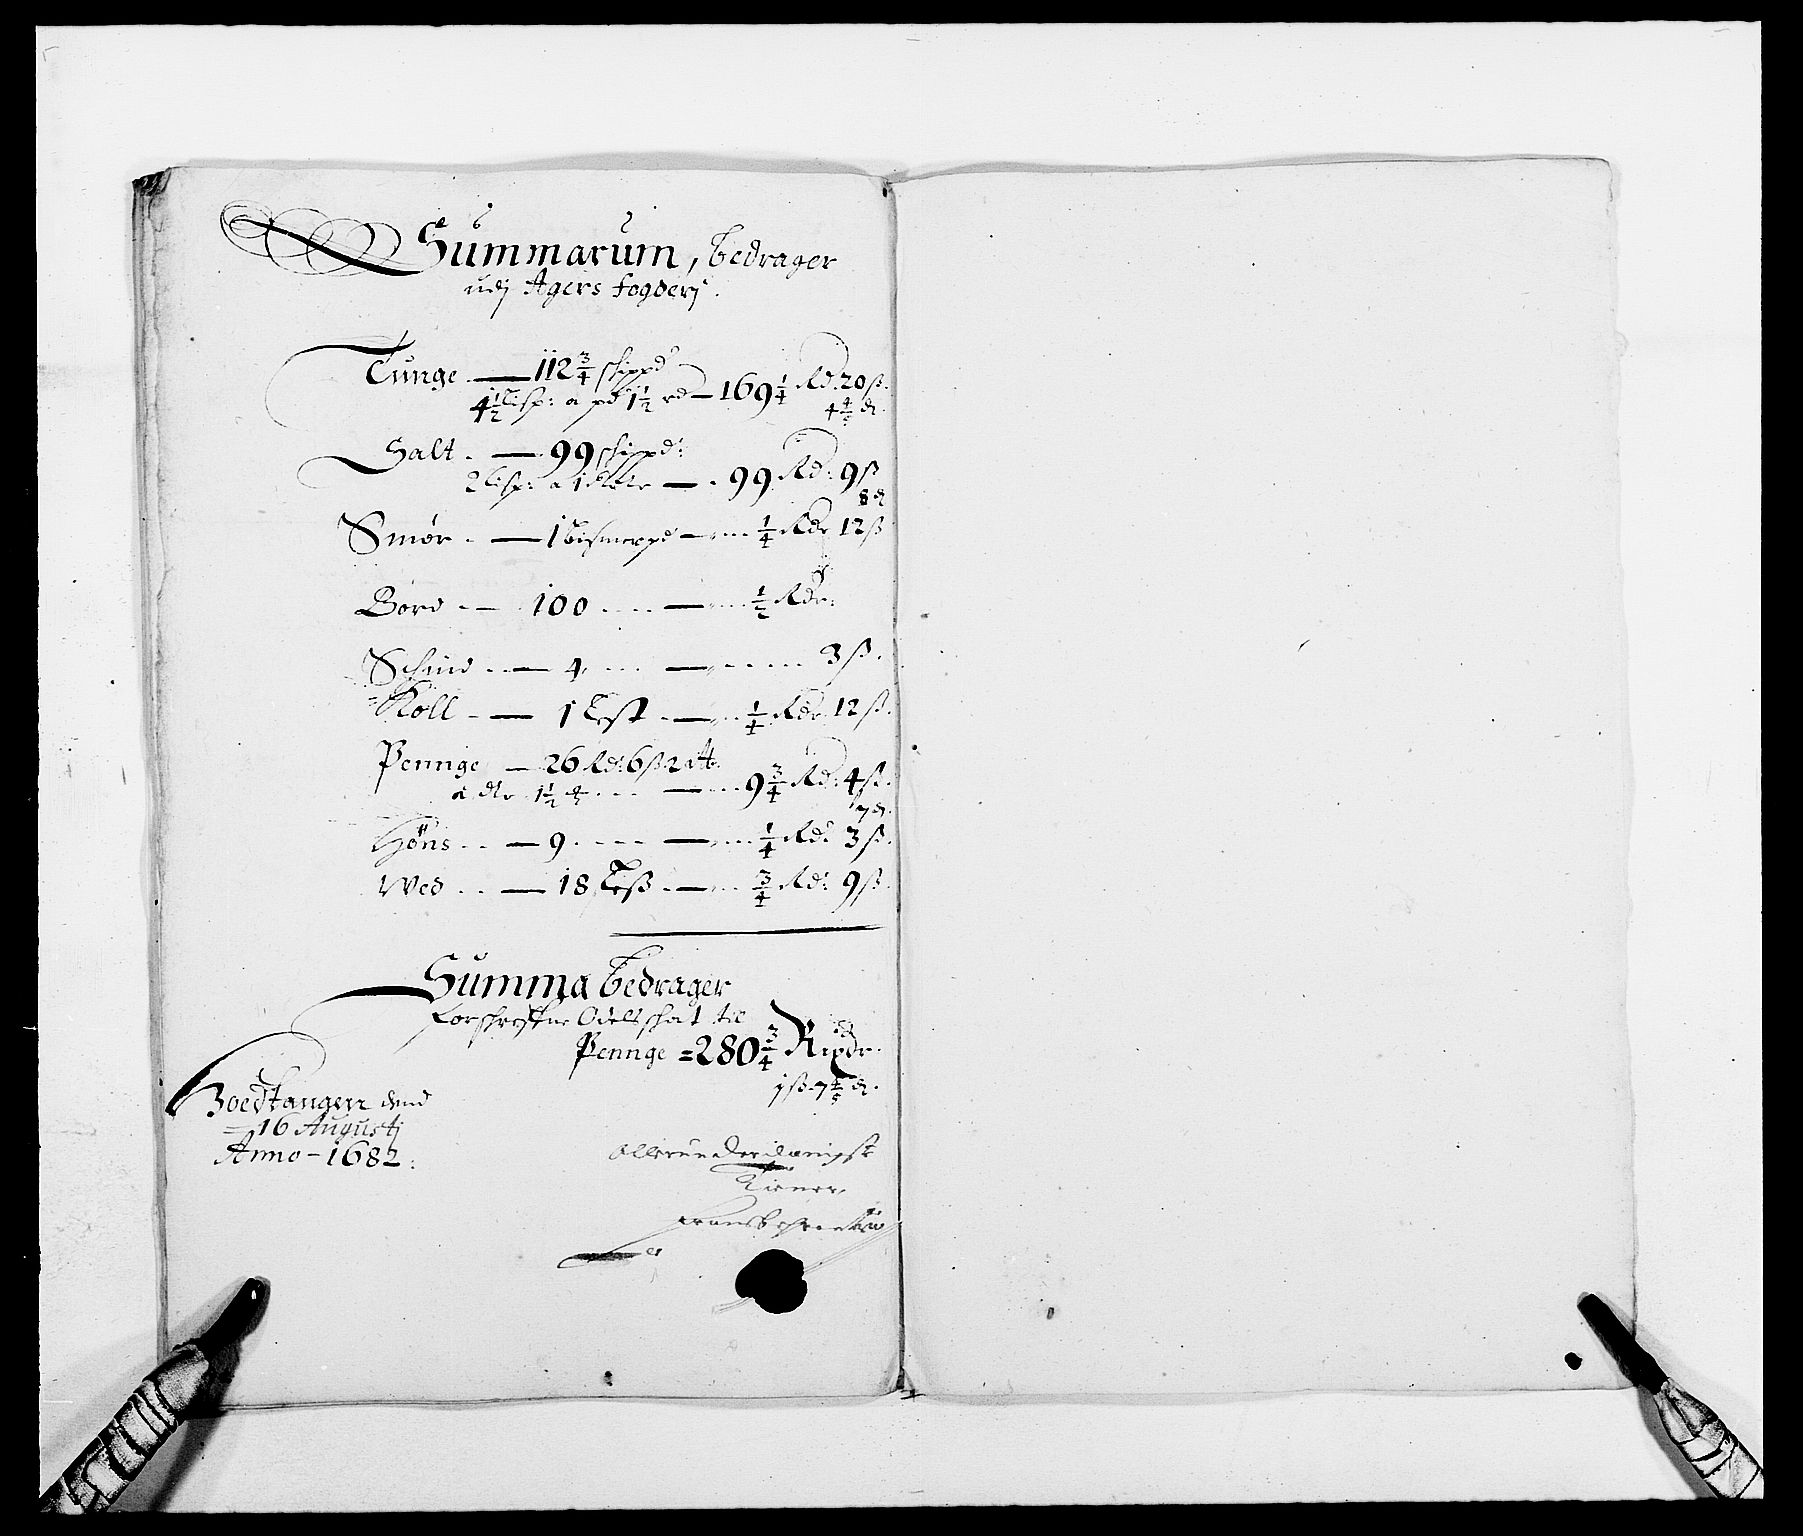 Summarum, bedrager
udj Agers fogderj.
Tunge — 112 3/4 schippd
4 1/2 lisp: a pd 1 1/2 rd — 169 1/4 Rd: 20 ß.
4 4/5 d.
Salt. — 99 schippd:
2 lisp: a 1 — 99 Rd: 9 ß
8 d
Smør. — 1 bismerpd — 1/4 Rdr 12 ß
Bord — 100 — 1/2 Rdr:
Schind — 4 — 3 ß.
Koll — 1 Lest — 1/4 Rdr 12 ß.
Pennge — 26 Rd: 6 ß 2
a dlr 1 1/2 ß — 9 3/4 Rd: 4 ß.
7 d.
Høns — 9 — 1/4 Rd: 3 ß.
Wed — 18 Leß — 3/4 Rd: 9 ß.
Summa bedrager
forschrefne Odelsschat til
Pennge = 280 3/4 Rixdr.
1 ß 7 4/5 d.
dend
16 Augustj
Anno — 1682.
Allerunderdanigst
Tiener